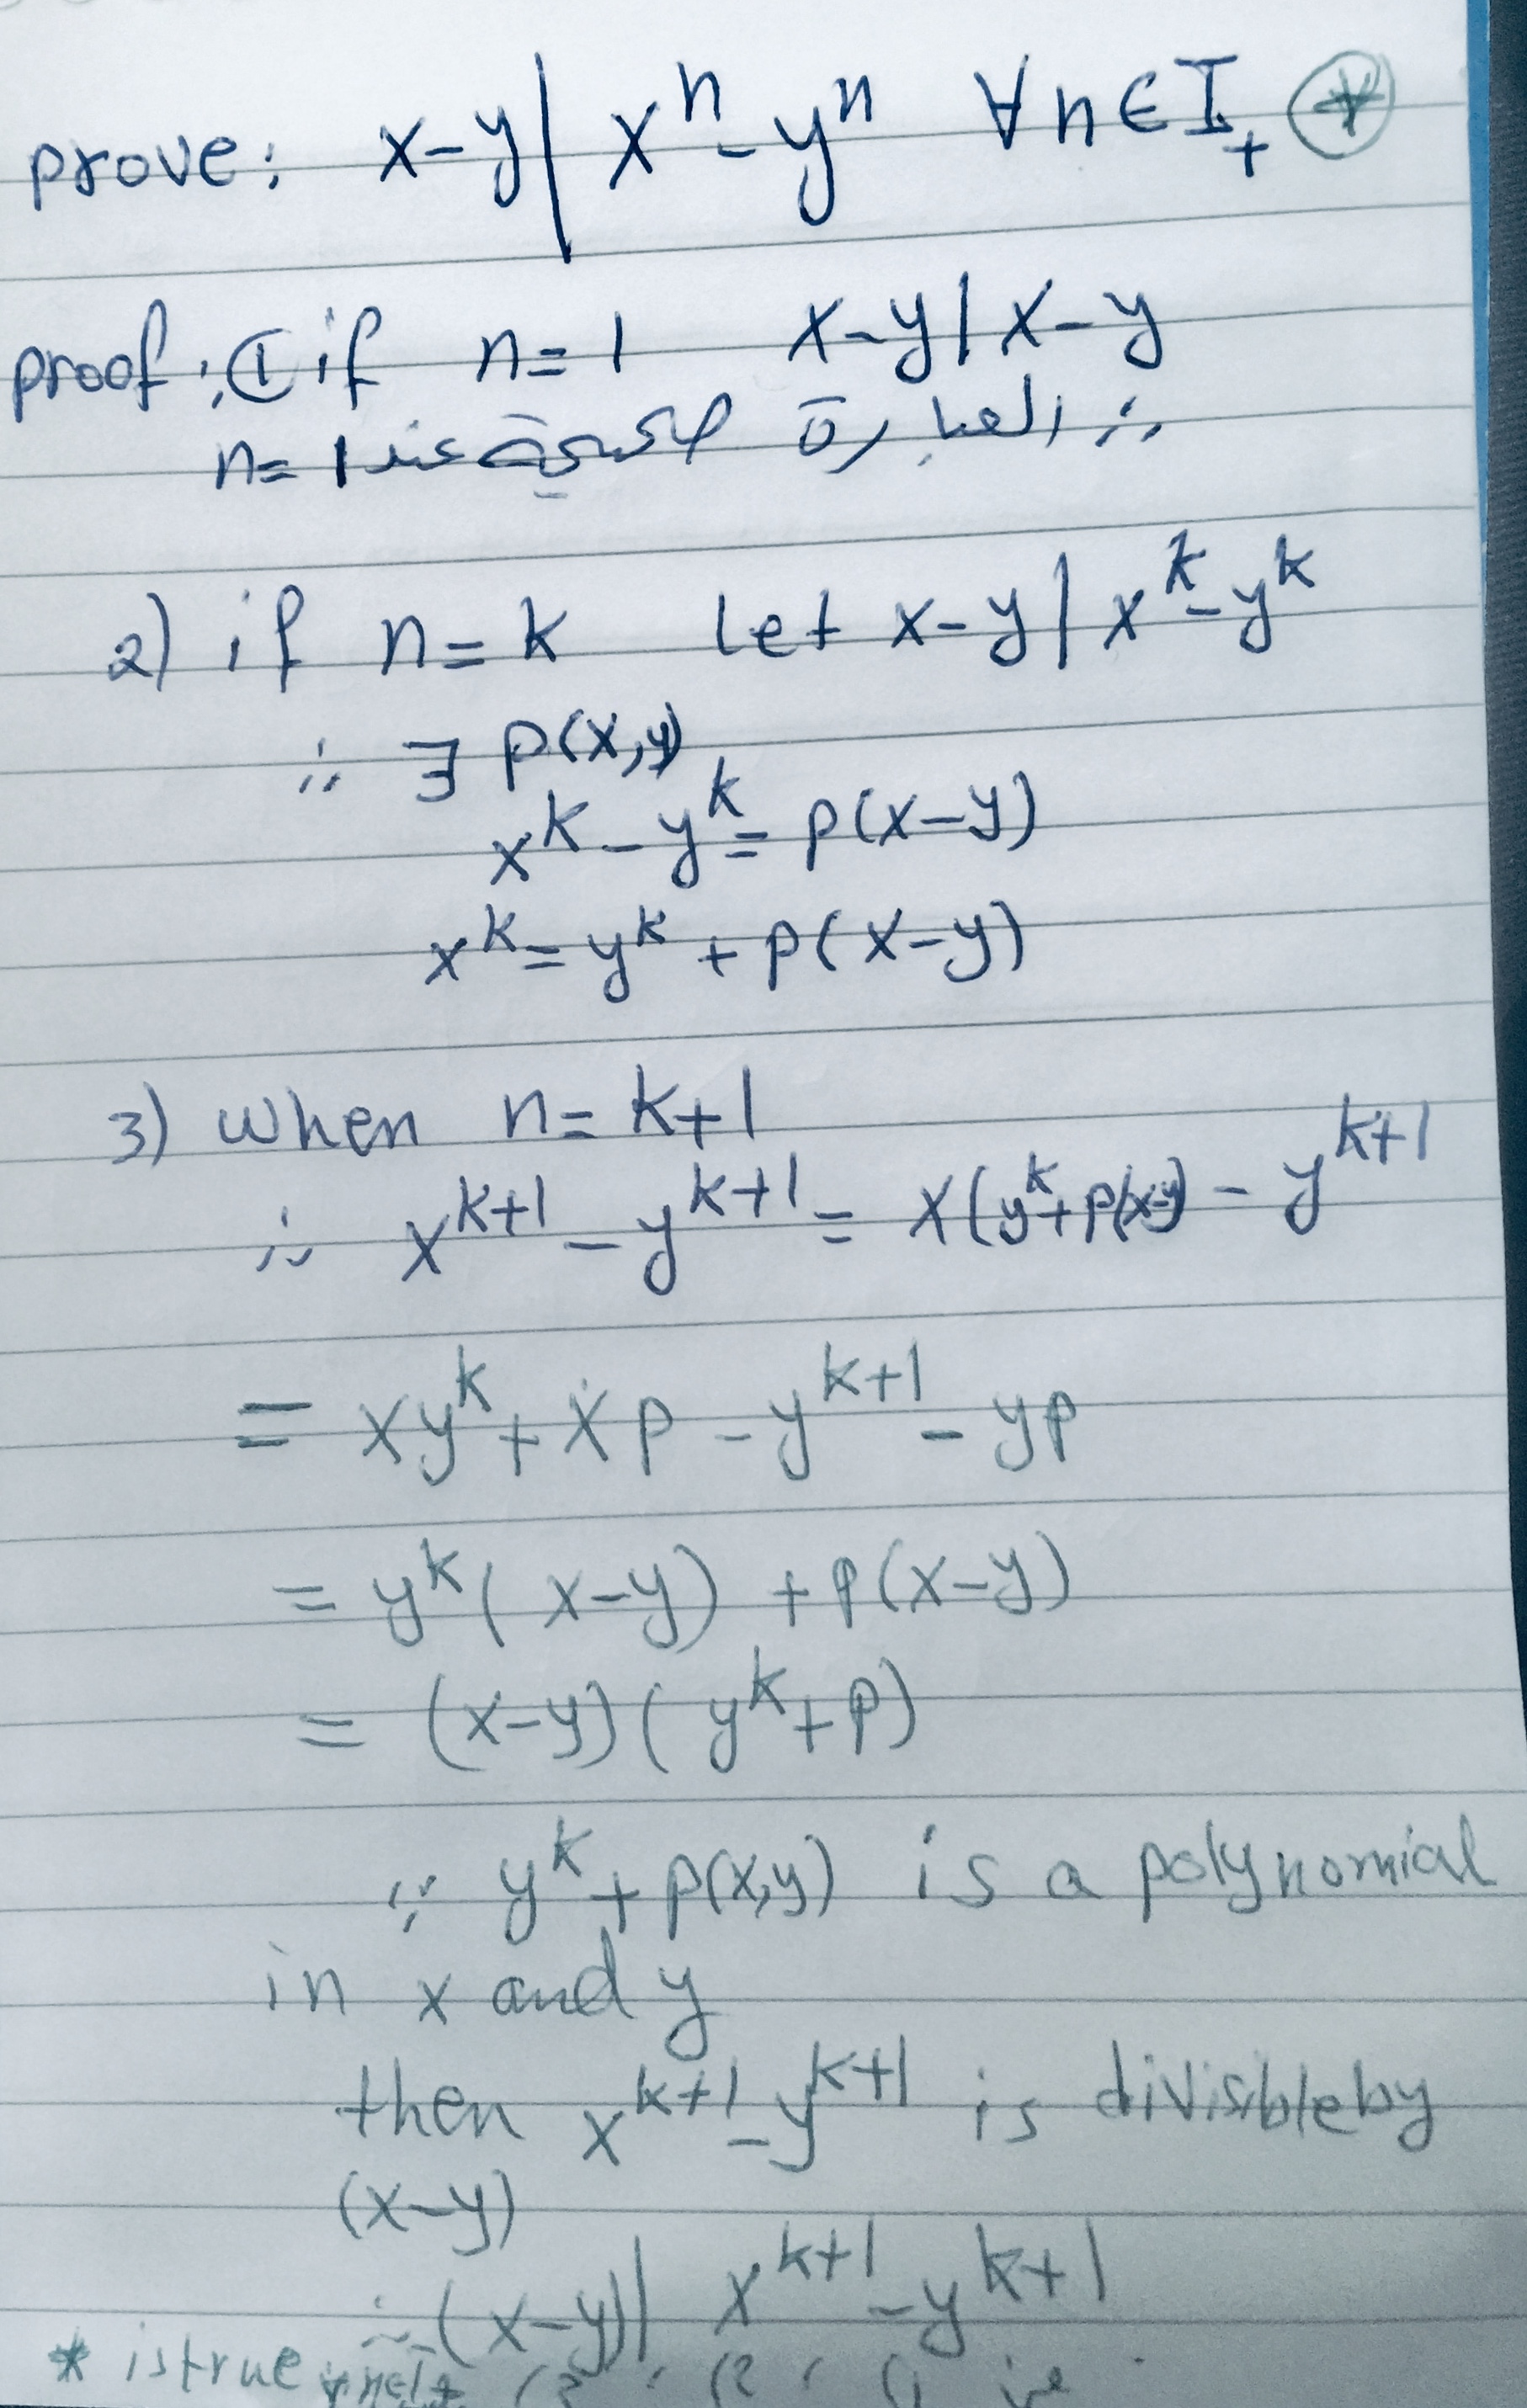 prove: x-y | xⁿ - yⁿ ∀n∈I₊ (*)
proof: ① if n=1 x-y | x-y
∴ العبارة صحيحة عند n=1
2) if n=k let x-y | x^k - y^k
∴ ∃ p(x,y)
x^k - y^k = p(x-y)
x^k = y^k + p(x-y)
3) when n=k+1
∴ x^{k+1} - y^{k+1} = x(y^k + p(x-y) - y^{k+1}
= xy^k + xp - y^{k+1} - yp
= y^k(x-y) + p(x-y)
= (x-y)(y^k + p)
∵ y^k + p(x,y) is a polynomial
in x and y
then x^{k+1} - y^{k+1} is divisible by
(x-y)
∴ (x-y) | x^{k+1} - y^{k+1}
* is true من (1 ، (2 ، (3